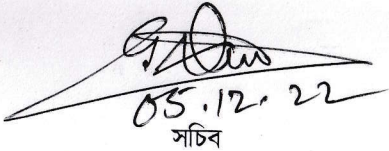 05.12.22
সচিব